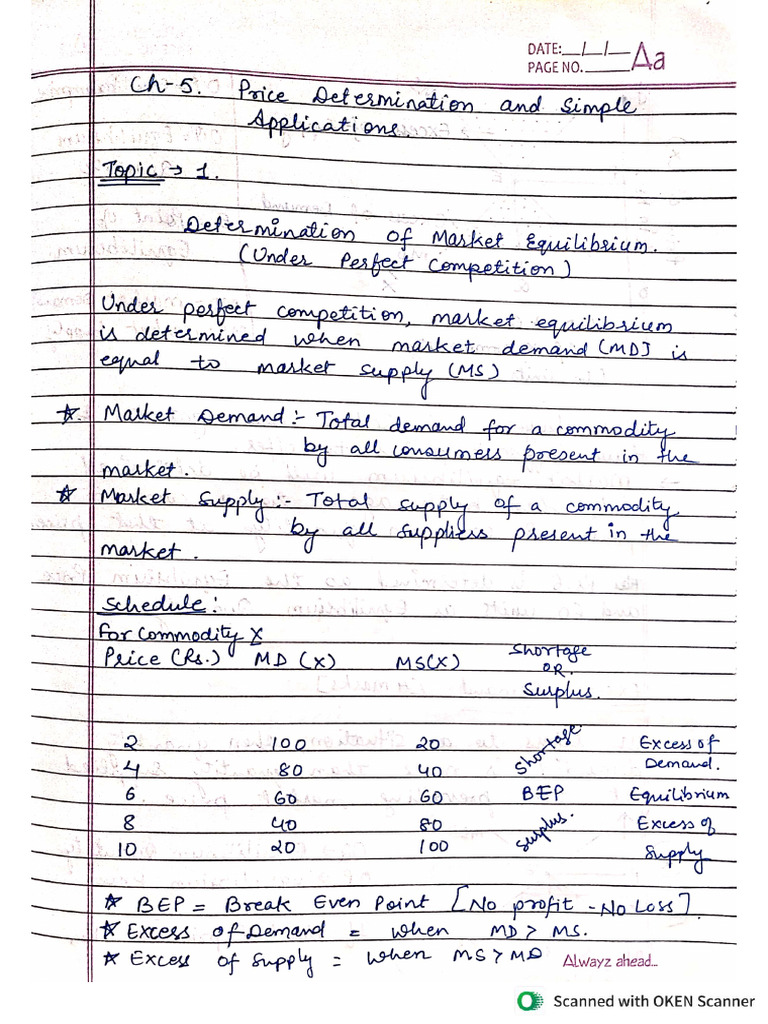 DATE:__/__/__
PAGE NO.______
Aa
Ch-5. Price Determination and Simple
Applications.
Topic → 1.
Determination of Market Equilibrium.
(Under Perfect Competition)
Under perfect competition, market equilibrium
is determined when market demand (MD] is
equal to market supply (MS)
☆. Market Demand :- Total demand for a commodity
by all consumers present in the
market.
☆ Market Supply :- Total supply of a commodity
by all suppliers present in the
market.
Schedule :
For Commodity X
Price (Rs.) MD (X) MS(X) Shortage
OR.
Surplus.
2 100 20 Shortage Excess of
4 80 40 Demand.
6 60 60 BEP Equilibrium
8 40 80 surplus. Excess of
10 20 100 Supply
☆ BEP = Break Even Point [No profit - No Loss].
☆ Excess of Demand = when MD > MS.
☆ Excess of Supply = when MS > MD
Alwayz ahead...
Scanned with OKEN Scanner